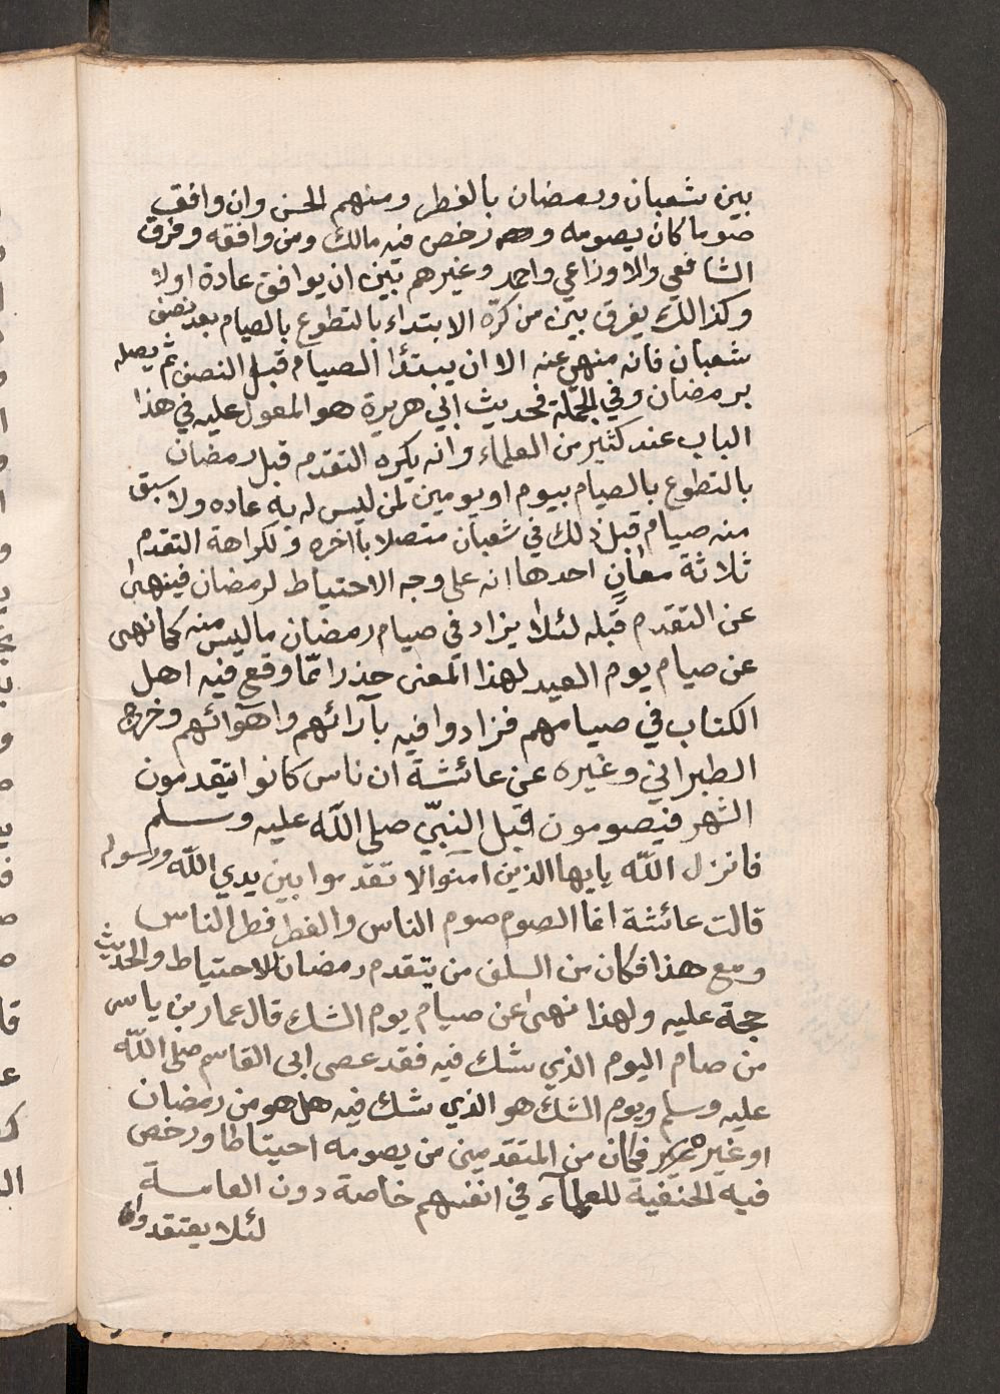 بين شعبان ورمضان بالفطر ومنهم الحسن وان وافق
صوما كان يصومه ورخص فيه مالك ومن وافقه وفرق
الشافعي والاوزاعي واحمد وغيرهم بين ان يوافق عادة اولا
وكذالك يفرق بين من كرّه الابتداء بالتطوع بالصيام بعد نصف
شعبان فانه منهي عنه الا ان يبتدؤا الصيام قبل النصف ثم يصله
برمضان وفي الجملة فحديث ابي هريرة هو المعول عليه في هذا
الباب عند كثير من العلماء وانه يكره التقدم قبل رمضان
بالتطوع بالصيام بيوم او يومين لمن ليس له به عاده ولا سبق
منه صيام قبل ذلك في شعبان متصلا باآخره ولكراهة التقدم
ثلاثة معانٍ احدها انه على وجه الاحتياط لرمضان فينهى
عن التقدم قبله لئلا يزاد في صيام رمضان ما ليس منه كما نهى
عن صيام يوم العيد لهذا المعنى حذرا ممّا وقع فيه اهل
الكتاب في صيامهم فزادوا فيه بآرائهم واهوآئهم وخرج
الطبراني وغيره عن عائشة ان ناس كانوا يتقدمون
الشهر فيصومون قبل النبيّ صلى اللّه عليه وسلم
فانزل اللّه يايها الذين امنوا لا تقدموا بين يدي اللّه ورسوله
قالت عائشة انما الصوم صوم الناس والفطر فطر الناس
ومع هذا فكان من السلف من يتقدم رمضان للاحتياط والحديث
حجة عليه ولهذا نهى عن صيام يوم الشك قال عمار بن ياسر
من صام اليوم الذي شك فيه فقد عصى ابى القاسم صلى اللّه
عليه وسلم ويوم الشك هو الذي شك فيه هل هو من رمضان
او غيره فكان من المتقدمين من يصومه احتياطا ورخص
فيه الحنفية للعلمآء في انفسهم خاصة دون العامة
لئلا يعتقدوا